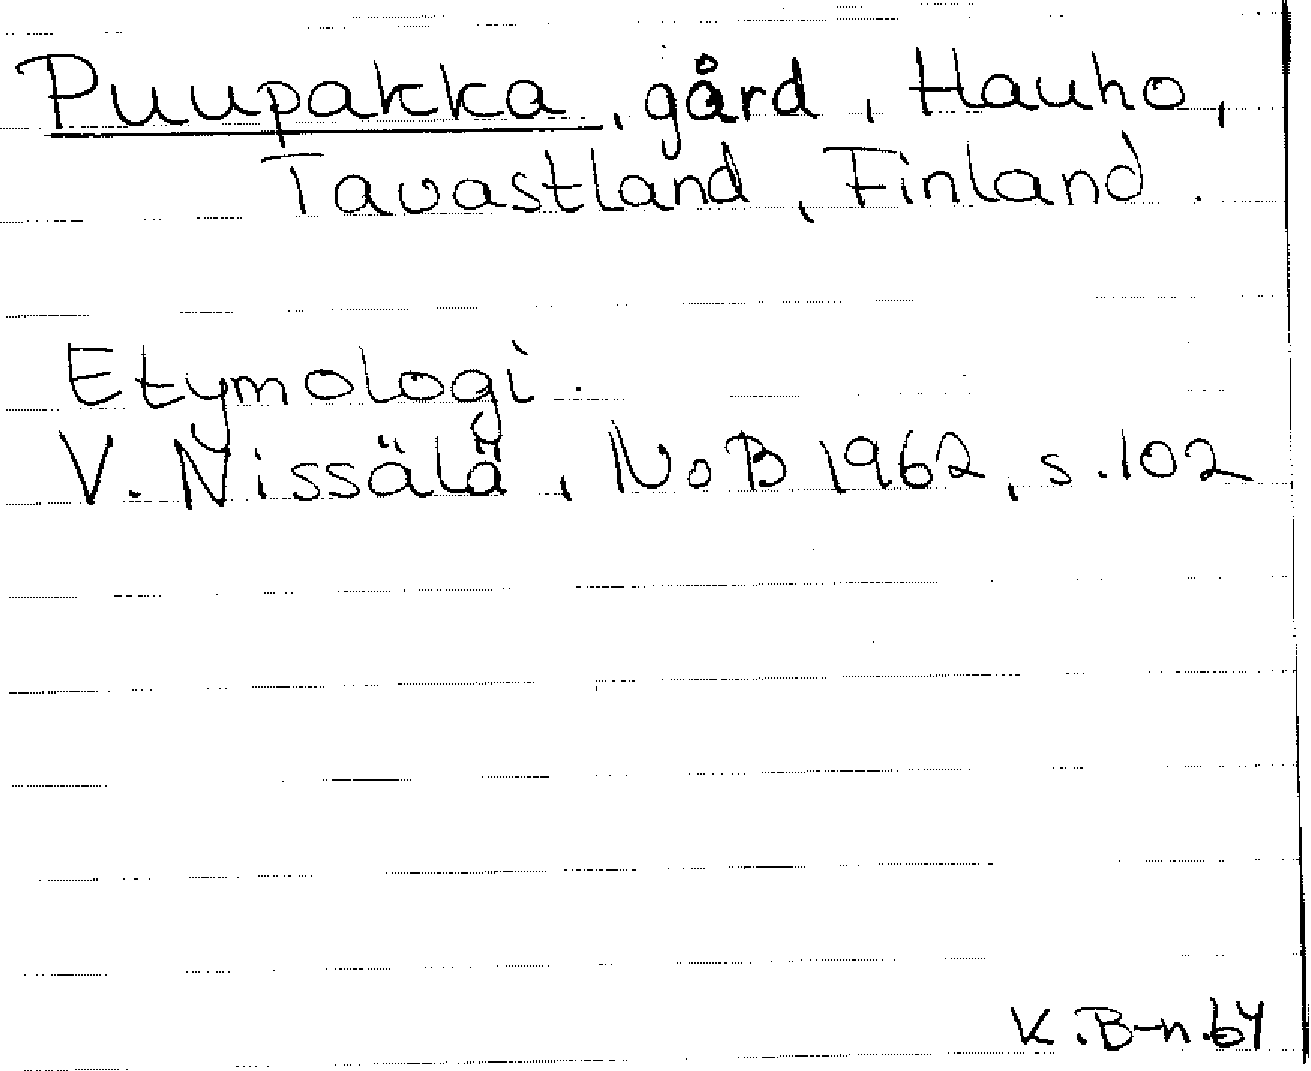 Puupakka, gård, Hauho,
Tavastland, Finland.
Etymologi.
V. Nissälä, NoB 1962, s.102
K.B-n.64